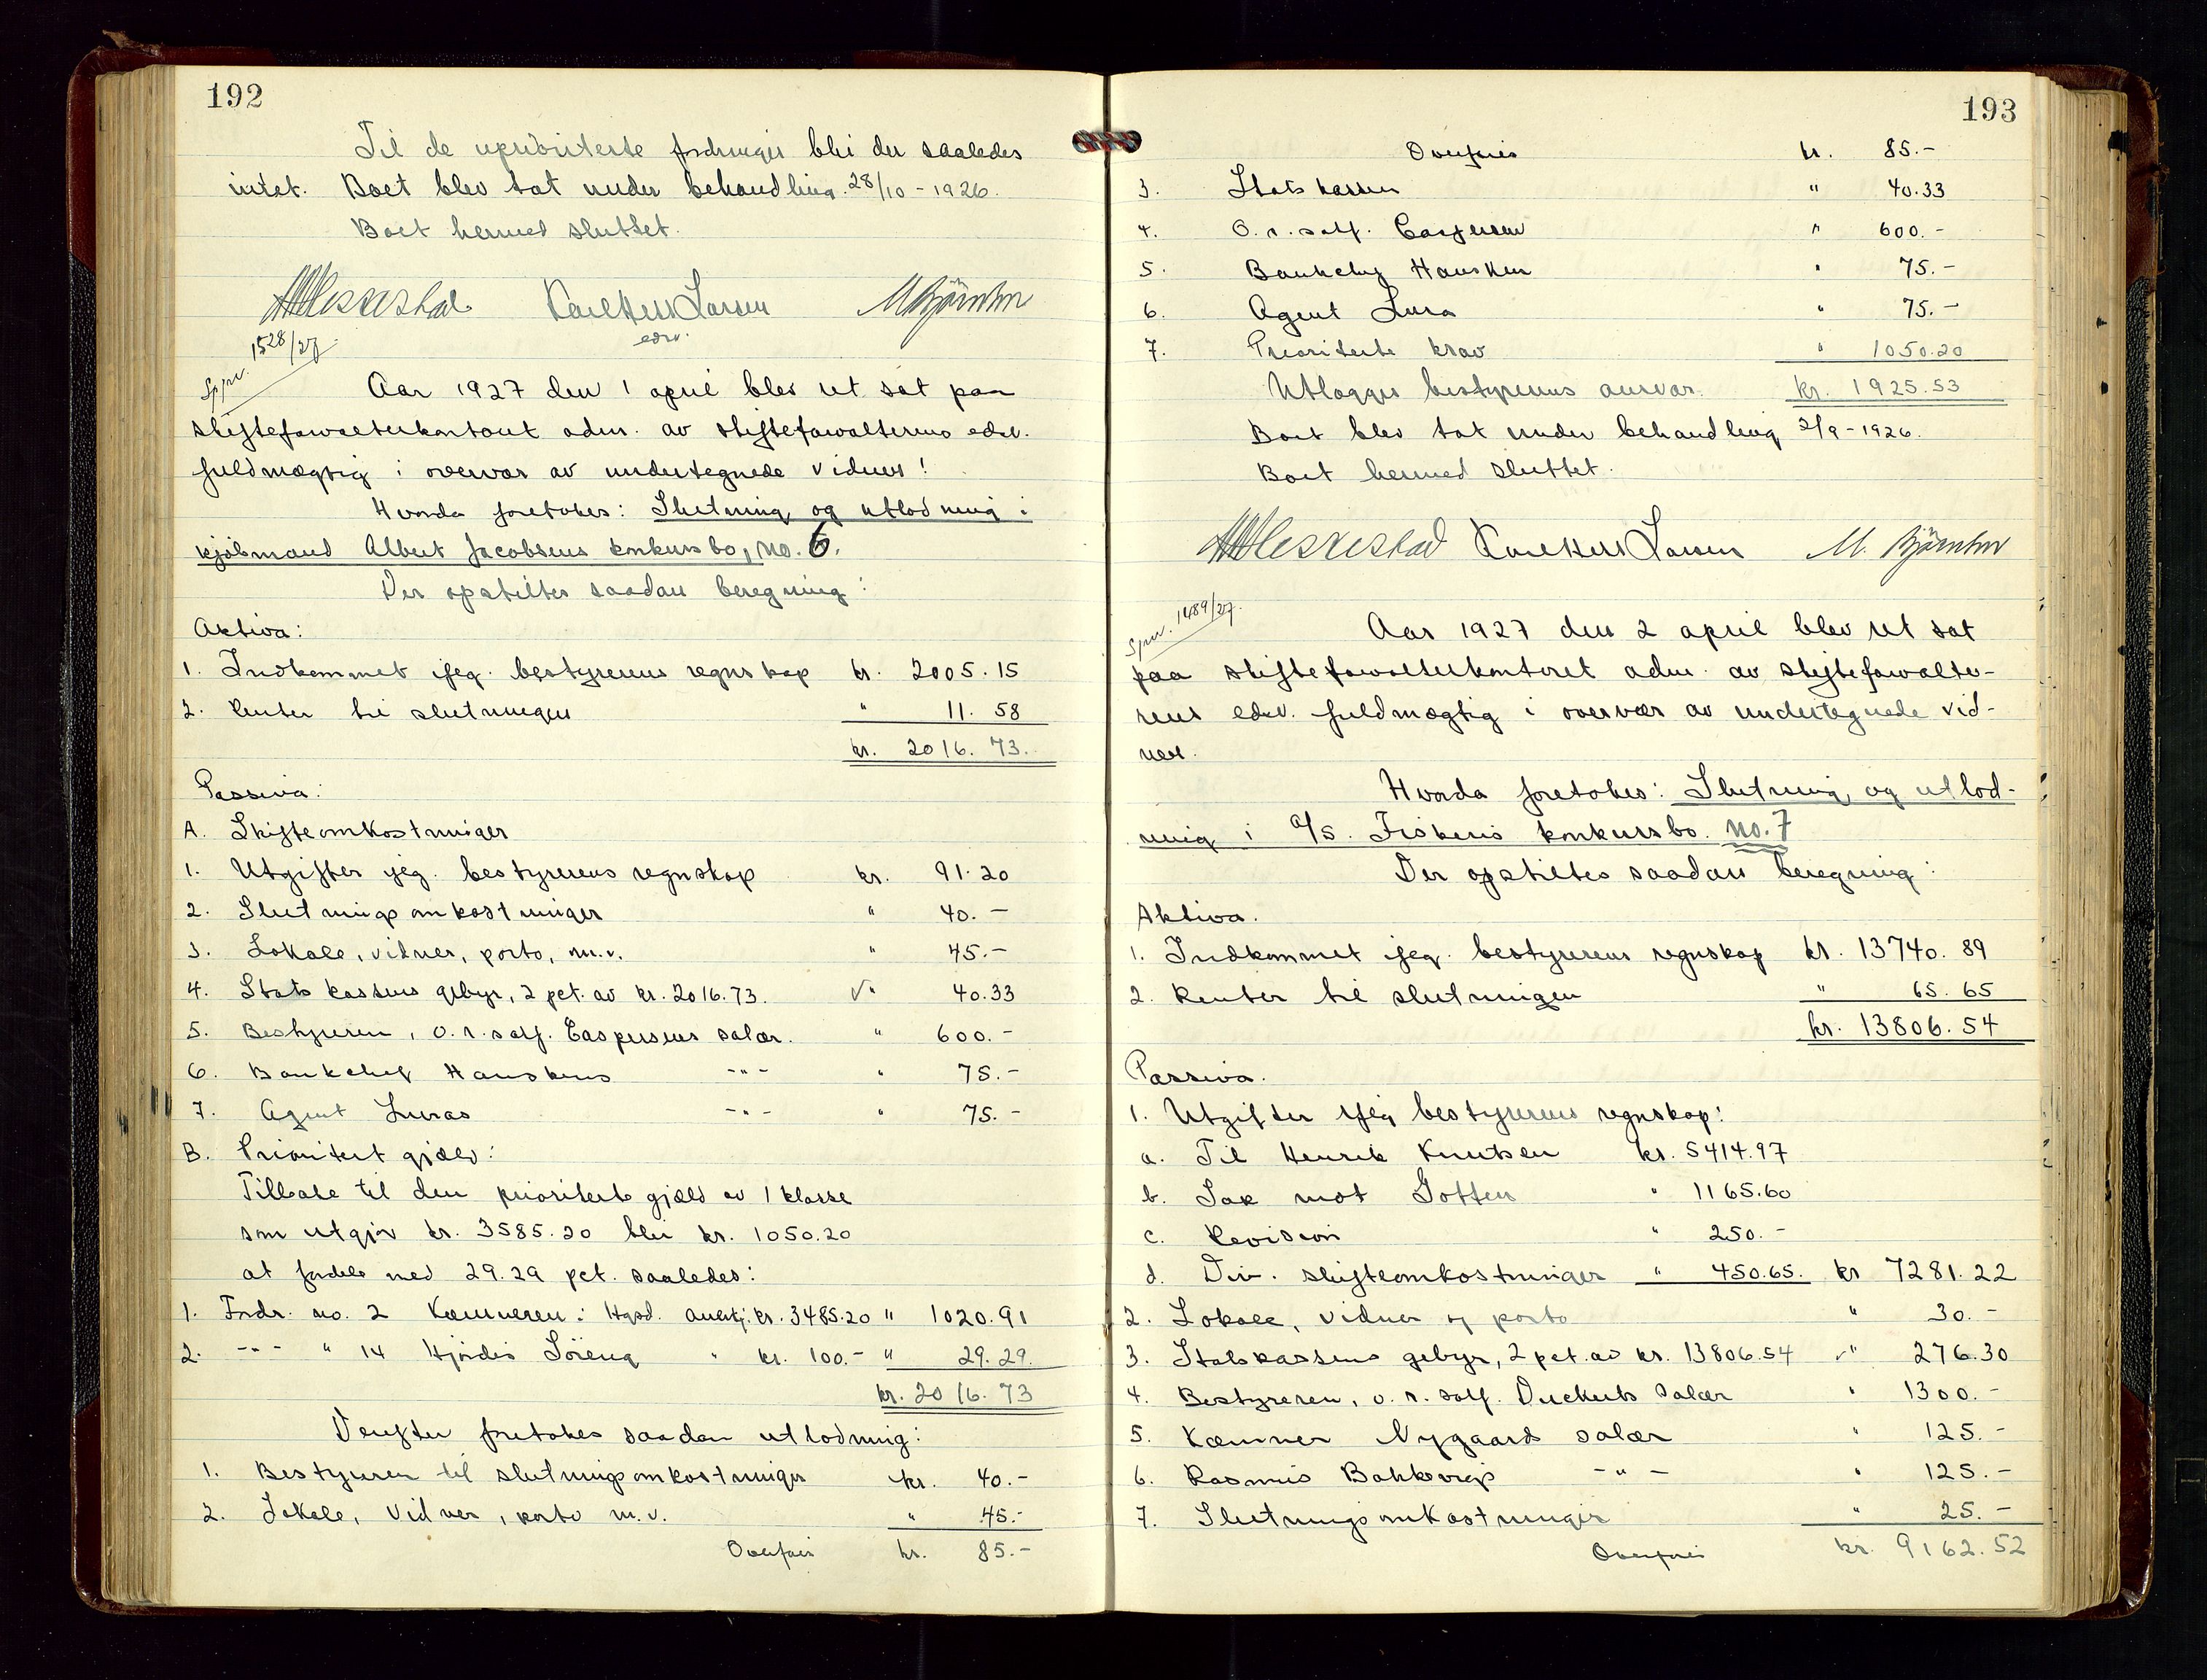 192
Til de upriviterte fordringer blir der saaledes
intet. Boet blev tat under behandling 28/10 - 1926.
Boet hermed sluttet.
Karl Herss Larsen M Björnhn
edsv.
Sp.nr. 1528/27
Aar 1927 den 1 april blev ret sat paa
skifteforvalterkontoret adm. av skifteforvalterens edsv.
fuldmægtig i overvær av undertegnede vidner!
Hvorda foretokes: Slutning og utlodning i
kjøbmand Albert Jacobsens konkursbo, no. 6.
Der opstiltes saadan beregning:
Aktiva:
1. Indkommet ifølg. bestyrerens regnskap kr. 2005.15
2. Renter til slutningen " 11.58
kr. 2016.73.
Passiva:
A. Skifteomkostninger
1. Utgifter ifølg. bestyrerens regnskap kr. 91.20
2. Slutningsomkostninger " 40.-
3. Lokale, vidner, porto, m.v. " 45.-
4. Statskassens gebyr, 2 pct. av kr. 2016.73. " 40.33
5. Bestyreren, o.r.sakf. Caspersens salær. " 600.-
6. Bankchef Hauskens -"- " 75.-
7. Agent Luras -"- " 75.-
B. Prioritert gjæld:
Tilbake til den prioriterte gjæld av 1 klasse
som utgjør kr. 3585.20 blir kr. 1050.20
at fordele med 29.29 pct. saaledes:
1. Fordr. no. 2 Kæmneren: Hgsd. anerkj. kr. 3485.20 " 1020.91
2. -"- " 14 Hjørdis Söreng " kr. 100.- " 29.29.
kr. 2016.73
Derefter foretokes saadan utlodning:
1. Bestyreren til slutningsomkostninger kr. 40.-
2. Lokale, vidner, porto m.v. " 45.-
Overføres kr. 85.-
193
Overføres kr. 85.-
3. Statskassen " 40.33
4. O.r.sakf. Caspersen " 600.-
5. Bankchef Hausken " 75.-
6. Agent Lura " 75.-
7. Prioriterte krav " 1050.20
Utlægges bestyrerens ansvar. kr. 1925.53
Boet blev tat under behandling 2/9 - 1926.
Boet hermed sluttet.
Karl Herss Larsen M. Björnhn
Sp.nr. 1489/27.
Aar 1927 den 2 april blev ret sat
paa skifteforvalterkontoret adm. av skifteforvalte-
rens edsv. fuldmægtig i overvær av undertegnede vid-
ner.
Hvorda foretokes: Slutning og utlod-
ning i A/S. Fiskeris konkursbo. no. 7
Der opstiltes saadan beregning:
Aktiva.
1. Indkommet ifølg. bestyrerens regnskap kr. 13740.89
2. Renter til slutningen " 65.65
kr. 13806.54
Passiva.
1. Utgifter ifølg bestyrerens regnskap:
a. Til Henrik Knutsen kr. 5414.97
b. Sak mot " 1165.60
c. Revision " 250.-
d. Div. skifteomkostninger " 450.65. kr 7281.22
2. Lokale, vidner og porto " 30.-
3. Statskassens gebyr, 2 pct. av kr. 13806.54 " 276.30
4. Bestyreren, o.r.sakf. Duckerts salær " 1300.-
5. Kæmner Nygaards salær " 125.-
6. Rasmus Bakkevigs -"- " 125.-
7. Slutningsomkostninger " 25.-
Overføres kr. 9162.52